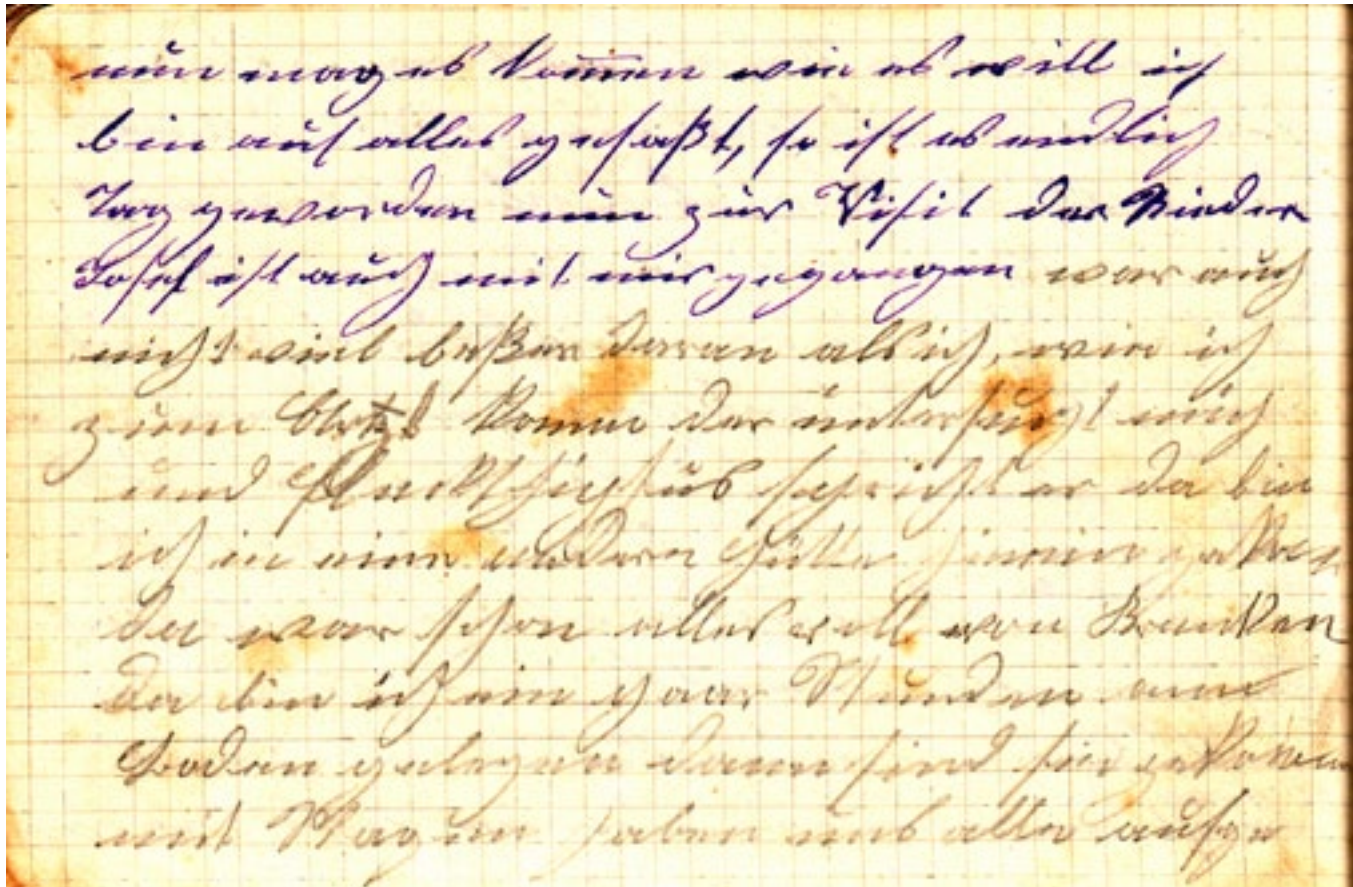 nun mag es kom̅en wie es will ich
bin auf alles gefaßt, so ist es endlich
Tag geworden nun zur Visit der Rieder
Josef ist auch mit mir gegangen war auch
nicht viel beßer daran als ich, wie ich
zum Arzt komm der untersucht mich
und spricht er da bin
ich in eine andere Hütte hinein
da war schon alles voll von Kranken
da bin ich ein paar Stunden am
Boden gelegen dann sind sie gekommen
mit Wagen haben uns alle aufge